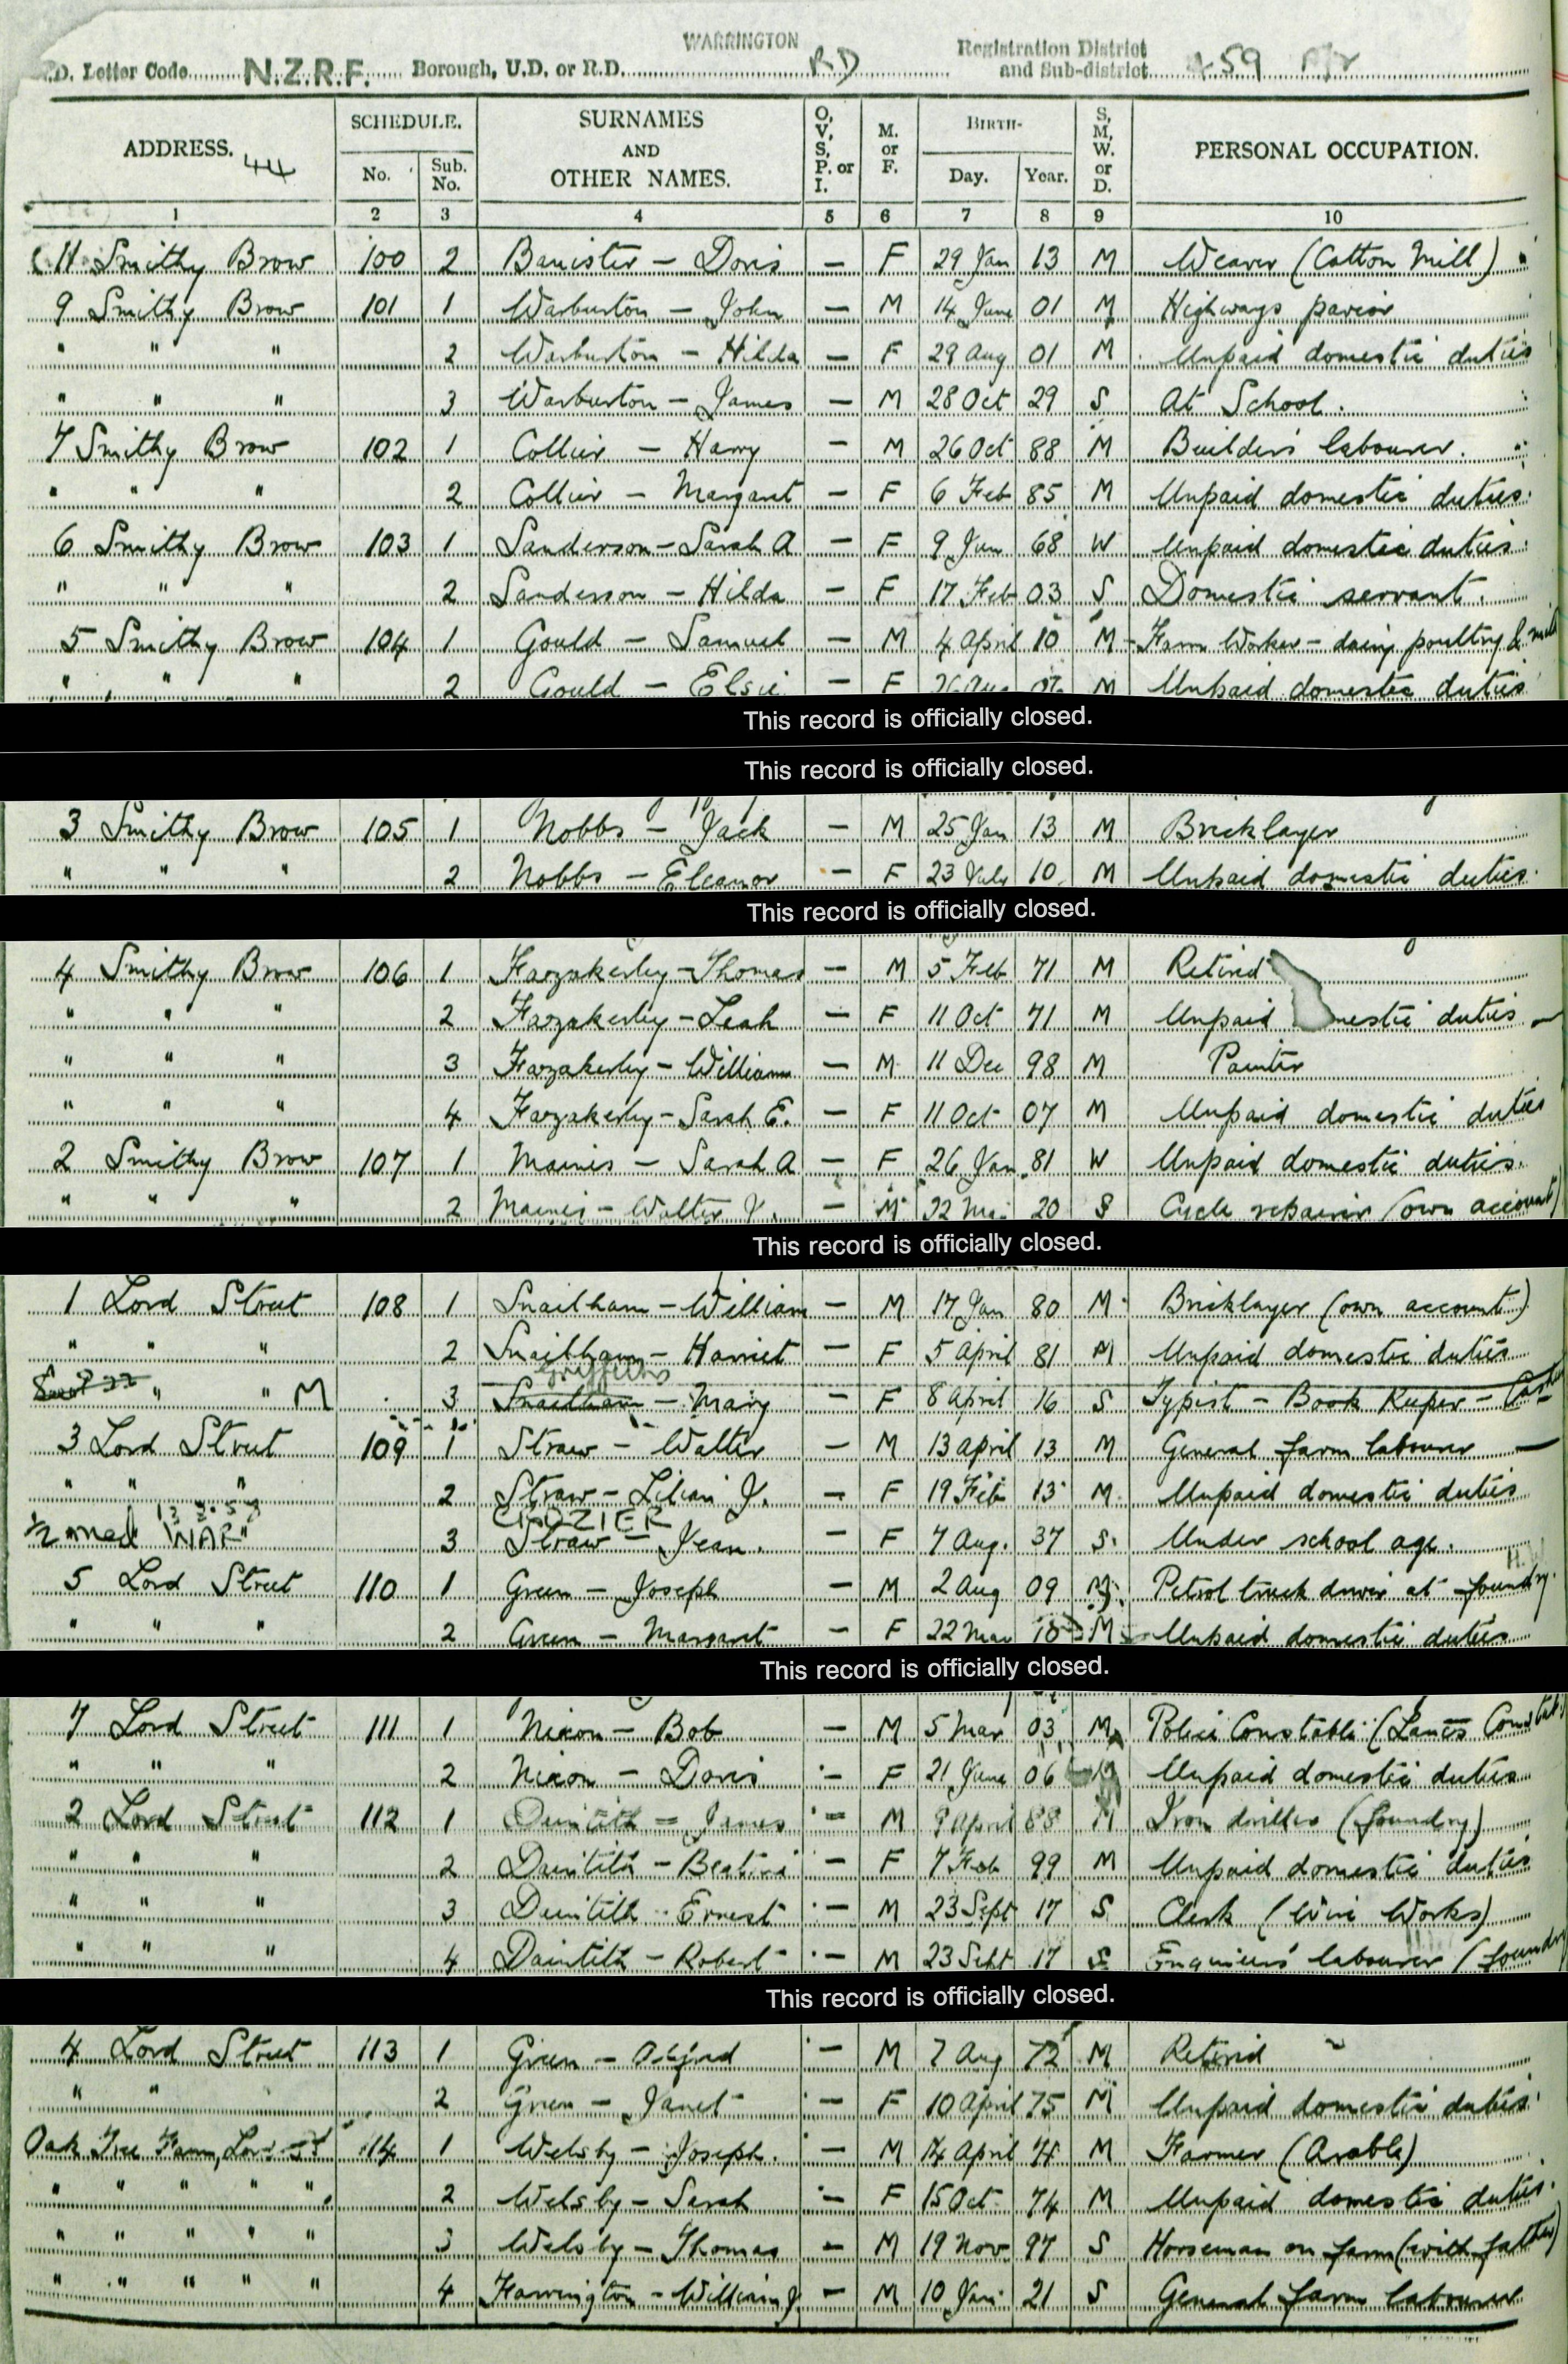 WARRINGTON
Letter Code N.Z.R.F. Borough, U.D. or R.D. RD Registration District and Sub-district 459
ADDRESS. 44 SCHEDULE. No. Sub. No. SURNAMES AND OTHER NAMES. O, V, S, P. or I. M. or F. BIRTH- Day. Year. S, M, W. or D. PERSONAL OCCUPATION.
1 2 3 4 5 6 7 8 9 10
11 Smithy Brow 100 2 Banister - Doris - F 29 Jan 13 M Weaver (Cotton Mill)
9 Smithy Brow 101 1 Warburton - John - M 14 June 01 M Highways pavior
" " " 2 Warburton - Hilda - F 29 Aug 01 M Unpaid domestic duties
" " " 3 Warburton - James - M 28 Oct 29 S At School.
7 Smithy Brow 102 1 Collier - Harry - M 26 Oct 88 M Builders labourer.
" " " 2 Collier - Margaret - F 6 Feb 85 M Unpaid domestic duties
6 Smithy Brow 103 1 Sanderson - Sarah A - F 9 Jun 68 W Unpaid domestic duties
" " " 2 Sanderson - Hilda - F 17 Feb 03 S Domestic servant.
5 Smithy Brow 104 1 Gould - Samuel - M 4 April 10 M Farm Worker - dairy poultry & milk
" " " 2 Gould - Elsie - F 26 Aug M Unpaid domestic duties
This record is officially closed.
This record is officially closed.
3 Smithy Brow 105 1 Nobbs - Jack - M 25 Jan 13 M Bricklayer
" " " 2 Nobbs - Eleanor - F 23 July 10 M Unpaid domestic duties
This record is officially closed.
4 Smithy Brow 106 1 Fazakerley - Thomas - M 5 Feb 71 M Retired
" " " 2 Fazakerley - Leah - F 11 Oct 71 M Unpaid mestic duties
" " " 3 Fazakerley - William - M 11 Dec 98 M Painter
" " " 4 Fazakerley - Sarah E. - F 11 Oct 07 M Unpaid domestic duties
2 Smithy Brow 107 1 Maines - Sarah A - F 26 Jan 81 W Unpaid domestic duties.
" " " 2 Maines - Walter J. - M 22 20 S Cycle repairer (own account)
This record is officially closed.
1 Lord Street 108 1 Snailham - William - M 17 Jan 80 M Bricklayer (own account)
" " " 2 Snailham - Harriet - F 5 April 81 M Unpaid domestic duties
" " M 3 Snailham - Mary - F 8 April 16 S Typist - Book Keeper -
3 Lord Street 109 1 Straw - Walter - M 13 April 13 M General farm labourer
" " " 2 Straw - Lilian J. - F 19 Feb 13 M Unpaid domestic duties
CROZIER
WAR 3 Straw - Jean. - F 7 Aug. 37 S. Under school age.
5 Lord Street 110 1 Green - Joseph - M 2 Aug 09 M Petrol truck driver at foundry.
" " " 2 Green - Margaret - F 22 Mar 10 M Unpaid domestic duties
This record is officially closed.
7 Lord Street 111 1 Nixon - Bob - M 5 Mar 03 M Police Constable (Lancs
" " " 2 Nixon - Doris - F 21 June 06 M Unpaid domestic duties
2 Lord Street 112 1 Daintith - James - M 9 April 88 M Iron driller (foundry)
" " " 2 Daintith - Beatrice - F 7 Feb 99 M Unpaid domestic duties
" " " 3 Daintith - Ernest - M 23 Sept 17 S Clerk (Wire Works)
" " " 4 Daintith - Robert - M 23 Sept 17 S Engineers' labourer (foundry
This record is officially closed.
4 Lord Street 113 1 Green - - M 7 Aug 72 M Retired
" " 2 Green - Janet - F 10 April 75 M Unpaid domestic duties
Oak Tree Farm, Lord St 114 1 Welsby - Joseph. - M 14 April 74 M Farmer (Arable)
" " " " " 2 Welsby - Sarah - F 15 Oct 74 M Unpaid domestic duties.
" " " " " 3 Welsby - Thomas - M 19 Nov 97 S Horseman on farm (with father)
" " " " " 4 Farrington - William J. - M 10 Jan 21 S General farm labourer